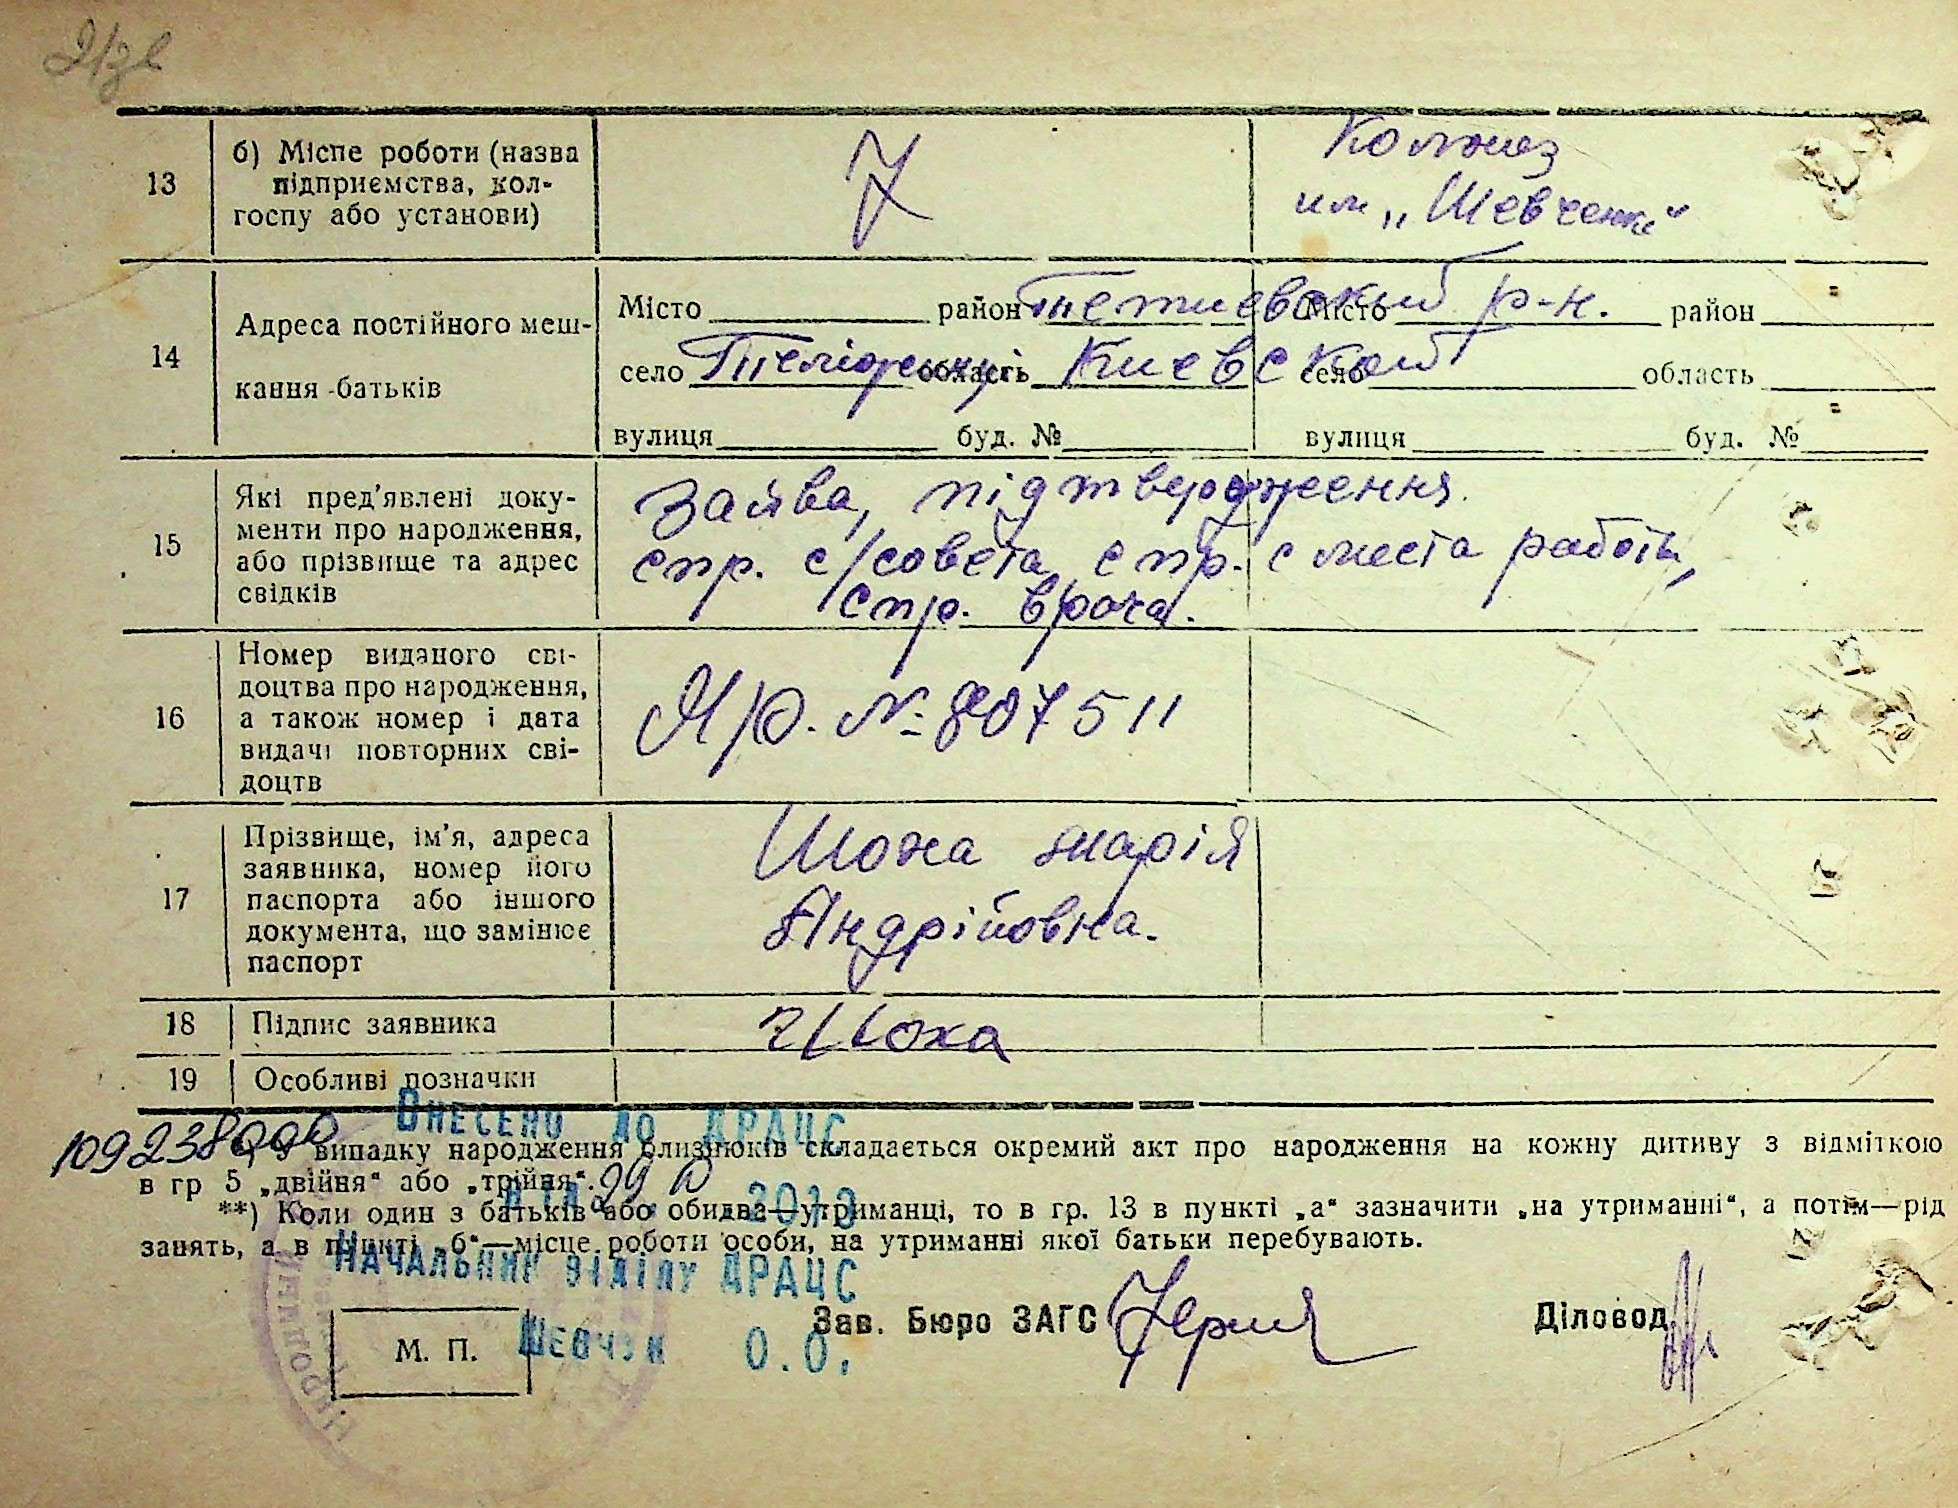 21зв
13
б) Місце роботи (назва
підприємства, кол-
госпу або установи)
Колхоз
им „Шевченка“
14
Адреса постійного меш-
кання батьків
Місто район Тетиевский р-н. Місто район
село область Киевской село область
вулиця буд. № вулиця буд. №
15
Які пред'явлені доку-
менти про народження,
або прізвище та адрес
свідків
Заява, підтвердження
спр. с/совета, спр. с места работы,
спр. врача.
16
Номер виданого сві-
доцтва про народження,
а також номер і дата
видачі повторних сві-
доцтв
№ 807511
17
Прізвище, ім'я, адреса
заявника, номер його
паспорта або іншого
документа, що замінює
паспорт
Шоха Марія
Андрійовна.
18
Підпис заявника
Шоха
19
Особливі позначки
Внесено до ДРАЦС
випадку народження близнюків складається окремий акт про народження на кожну дитину з відміткою
в гр 5 „двійня“ або „трійня“.
**) Коли один з батьків або обидва—утриманці, то в гр. 13 в пункті „а“ зазначити „на утриманні“, а потім—рід
занять, а в пункті „б“—місце роботи особи, на утриманні якої батьки перебувають.
Начальник відділу ДРАЦС
Шевчук О.О.
М. П.
Зав. Бюро ЗАГС
Діловод